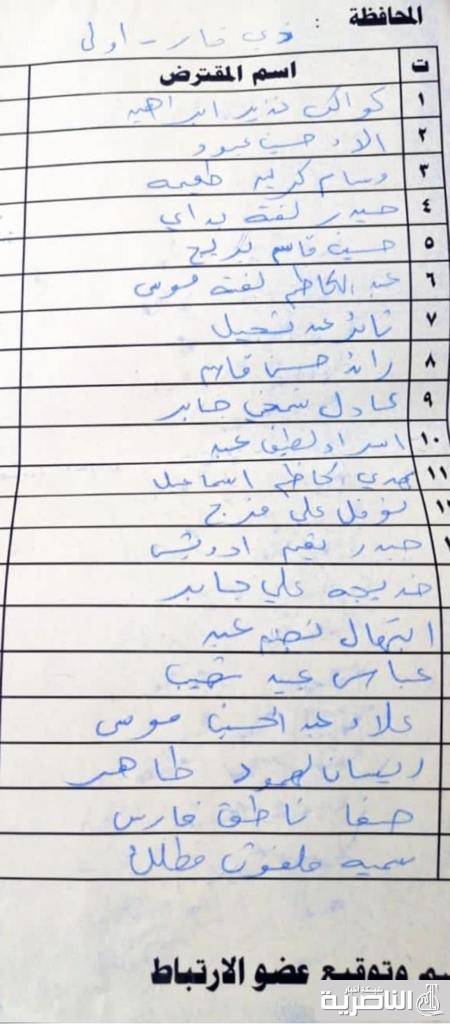 المحافظة : ذي قار - اولى
ت اسم المقترض
١ كواكب نذير ابراهيم
٢ الاء حسين عبود
٣ وسام كريم طعيمه
٤ حيدر لفتة بداي
٥ حسين قاسم
٦ عبد الكاظم لفتة موسى
٧ ثائر عبد
٨ رائد حسن قاسم
٩ عادل شمخي جابر
١٠ اسراء لطيف عبد
١١ مهدي كاظم اسماعيل
نوفل علي فرج
حيدر نعيم ادويش
خديجه علي جابر
ابتهال نجم عبد
عباس عبيد شهيب
علاء عبد الحسين موسى
ريسان لهمود ظاهر
صفا ناطق فارس
سميه ملغوث مطلك
م وتوقيع عضو الارتباط
شبكة اخبار
الناصرية